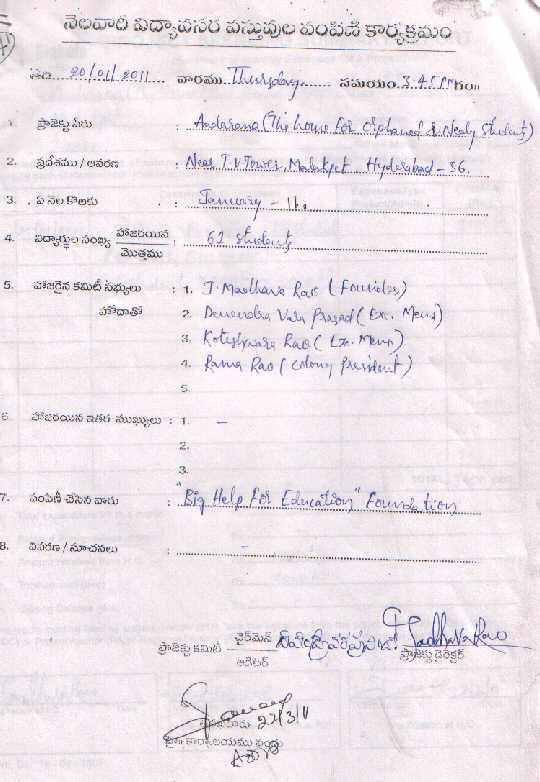 నెలవారి విద్యావసర వస్తువుల పంపిణి కార్యక్రమం
20/01/2011 వారము Thursday సమయం 3.45 PM గం॥
1. ప్రాజెక్టు పేరు : Aadarana (The house for orphaned & Needy Student)
2. ప్రదేశము / ఆవరణ : Near T.V Tower, Malakpet Hyderabad - 36.
3. ఏ నెల కొరకు : January - 11.
4. విద్యార్థుల సంఖ్య హాజరయిన / మొత్తము : 62 Students
5. హాజరైన కమిటీ సభ్యులు : 1. J. Madhava Rao (Founder)
హోదాతో 2. Devendra Vara Prasad (Exe. Mem)
3. Koteshwara Rao (Exe. Mem)
4. Rama Rao (colony President)
5.
6. హాజరయిన ఇతర ముఖ్యులు : 1. —
2.
3.
7. పంపిణీ చేసిన వారు : "Big Help For Education" Foundation
8. వివరణ / సూచనలు : -
ప్రాజెక్టు కమిటీ చైర్‌మెన్ / ఆడిటర్
MadhavaRao
ప్రాజెక్టు డైరెక్టర్
22/3/11